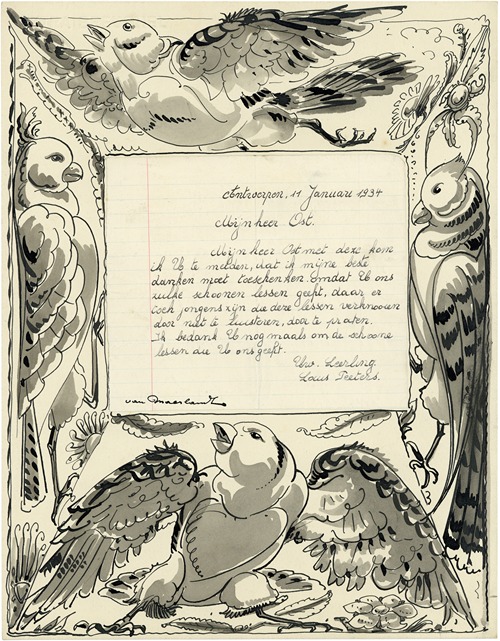 Antwerpen, 11 Januari 1934
Mijnheer Ost.
Mijnheer Ost met deze kom
ik U te melden, dat ik mijne beste
danken moet toeschenken omdat U ons
zulke schoonen lessen geeft, daar er
toch jongens zijn die deze lessen verknooien
door niet te luisteren, door te praten.
Ik bedank U nogmaals om de schoone
lessen die U ons geeft.
Uw. Leerling.
Louis Peeters.
van Maerlandt